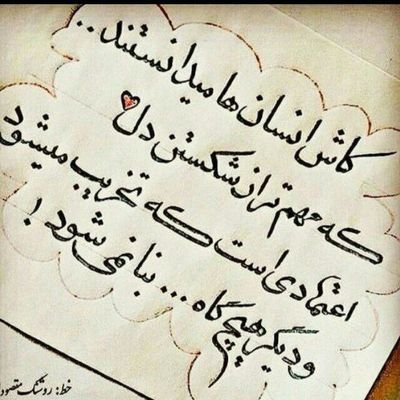 کاش انسان ها میدانستند...
که مهم تر از شکستن دل
اعتمادی است که تخریب میشود
و دیگر هیچ گاه... بنا نمی شود!
خط: روشنک مقصود